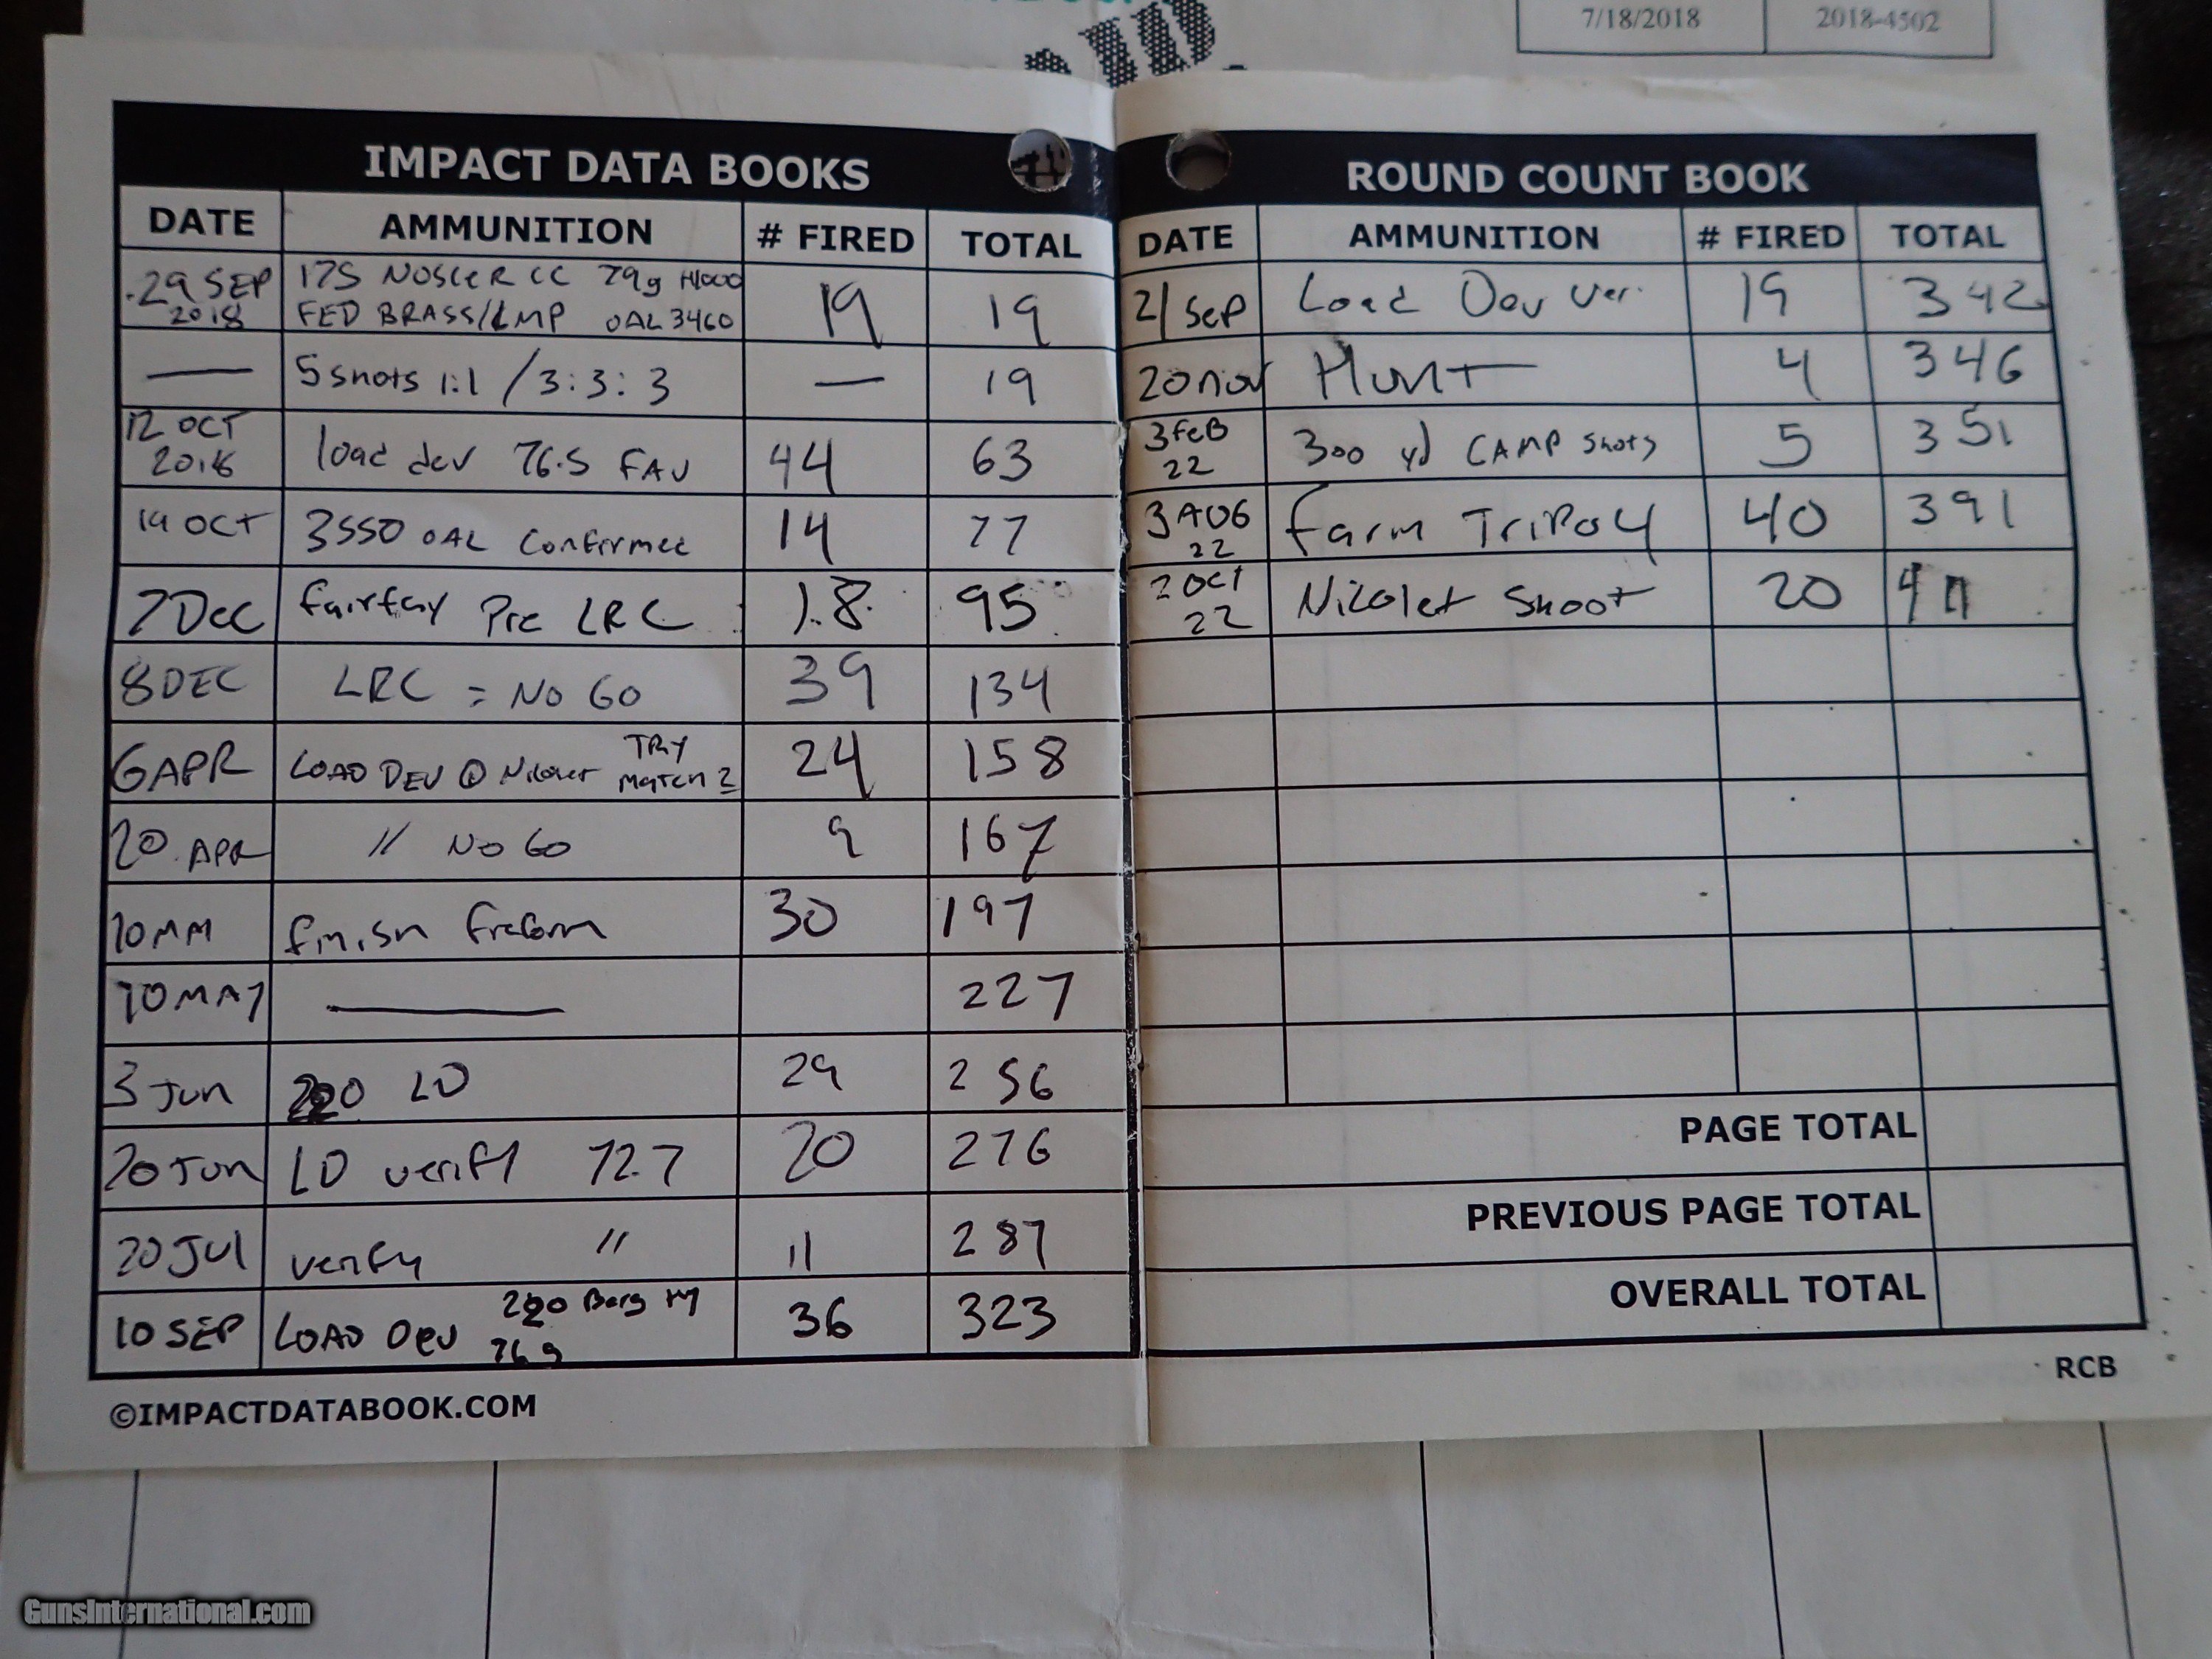 7/18/2018 2018-4502
IMPACT DATA BOOKS
DATE AMMUNITION # FIRED TOTAL
29 SEP 2018 175 NOSLER CC 79g H1000
FED BRASS/LMP OAL 3460 19 19
— 5 shots 1:1 / 3:3:3 — 19
12 OCT
2018 load dev 76.5 FAV 44 63
14 OCT 3550 OAL Confirmed 14 77
7 Dec Pre LRC 18 95
8 DEC LRC = NO GO 39 134
6 APR LOAD DEV @ Nicolet TRY
Match 2 24 158
20 APR // NO GO 9 167
10 finish 30 197
10 MAY — 227
3 Jun 220 LD 29 256
20 Jun LD verify 72.7 20 276
20 Jul verify // 11 287
10 SEP LOAD Dev 220 Berg 
76 g 36 323
©IMPACTDATABOOK.COM
ROUND COUNT BOOK
DATE AMMUNITION # FIRED TOTAL
21 Sep Load Dev Ver. 19 342
20 nov Hunt 4 346
3 FeB
22 300 yd CAMP Shots 5 351
3 AUG
22 Farm 40 391
2 Oct
22 Nicolet Shoot 20
PAGE TOTAL
PREVIOUS PAGE TOTAL
OVERALL TOTAL
RCB
GunsInternational.com